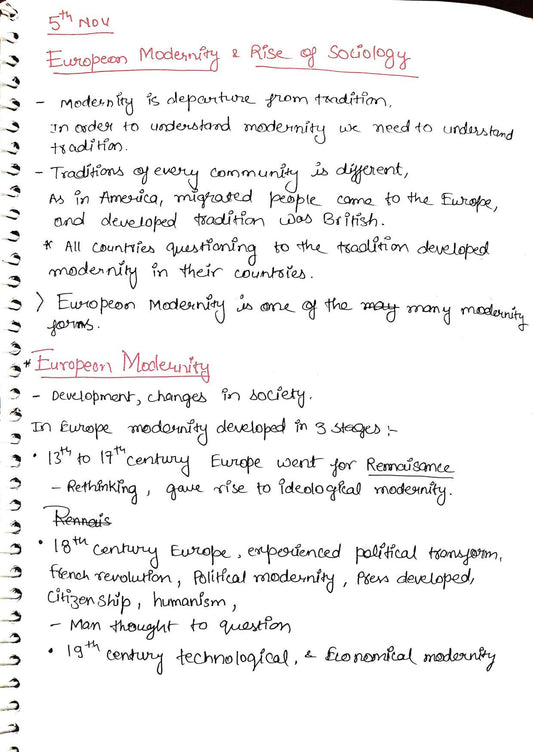 5th Nov
European Modernity & Rise of Sociology
- Modernity is departure from tradition,
In order to understand modernity we need to understand
tradition.
- Traditions of every community is different,
As in America, migrated people came to the Europe,
and developed tradition was British.
* All countries questioning to the tradition developed
modernity in their countries.
> European Modernity is one of the may many modernity
forms.
* European Modernity
- Development, changes in society.
In Europe modernity developed in 3 stages :-
• 13th to 17th century Europe went for Rennaisance
- Rethinking, gave rise to ideological modernity.
Rennais
• 18th century Europe, experienced political transform,
french revolution, Political modernity, Press developed,
Citizenship, humanism,
- Man thought to question
• 19th century technological, & Economical modernity